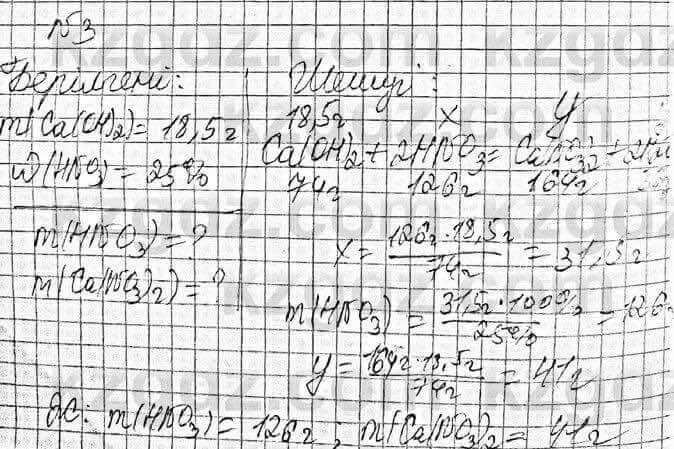 №3
Берілгені:
m(Ca(OH)2) = 18,5г
W(HNO3) = 25%
m(HNO3) = ?
m(Ca(NO3)2) = ?
Шешуі:
18,5г x y
Ca(OH)2 + 2HNO3 = Ca(NO3)2 + 2H2O
74г 126г 164г
x = 126г · 18,5г / 74г = 31,5г
m(HNO3) = 31,5г · 100% / 25% = 126г
y = 164г · 18,5г / 74г = 41г
Ж: m(HNO3) = 126г ; m(Ca(NO3)2 = 41г
kzgdz.com